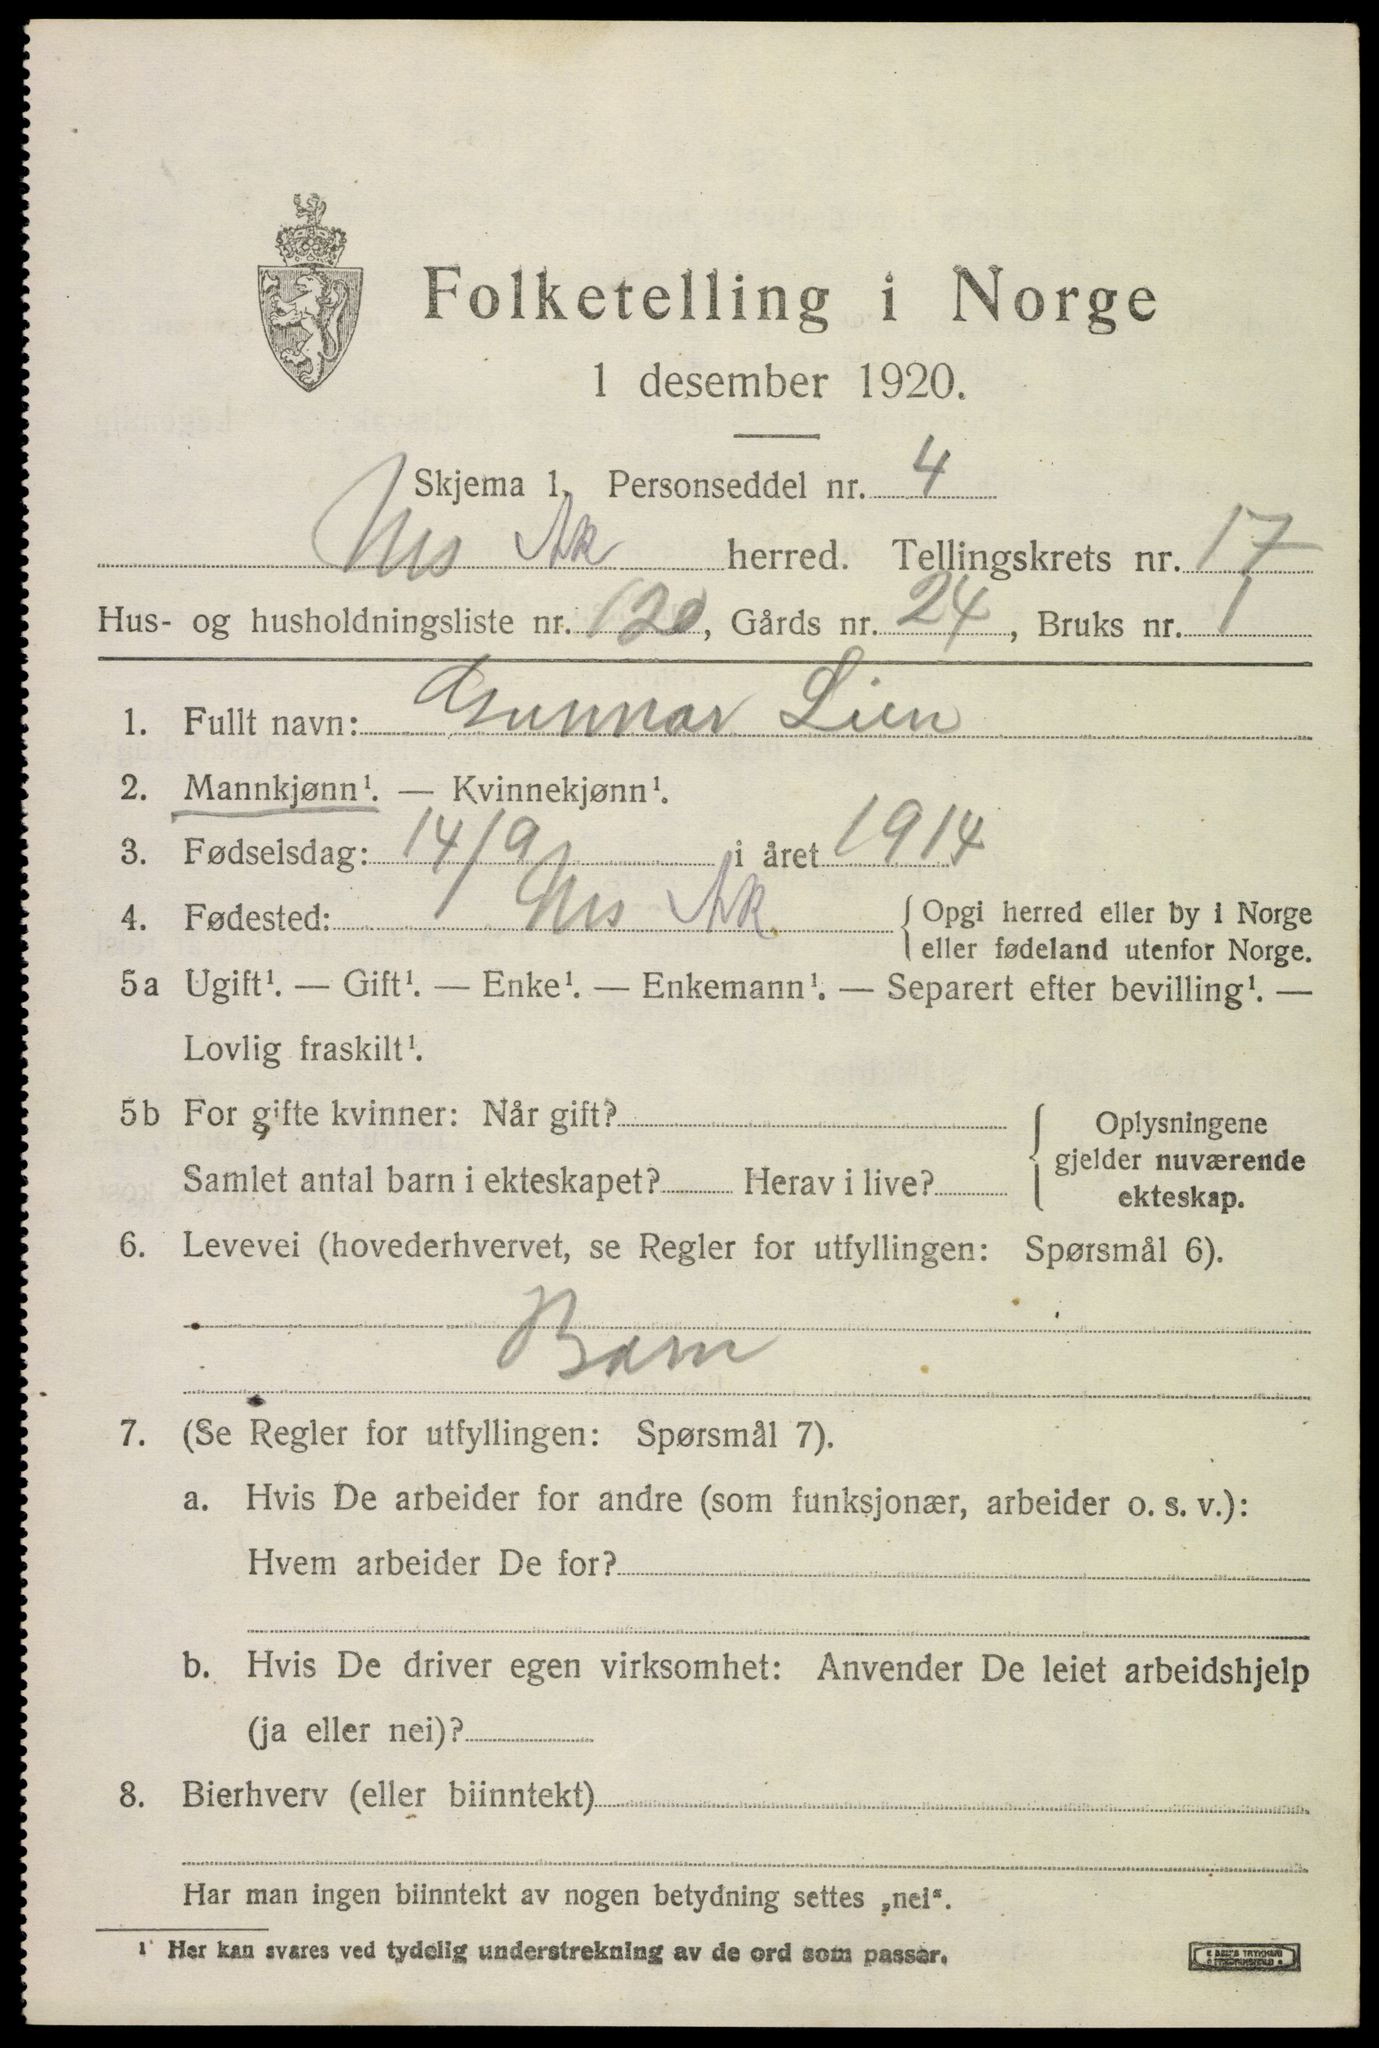 Folketelling i Norge
1 desember 1920.
Skjema 1. Personseddel nr. 4
Nes Ak herred. Tellingskrets nr. 17
Hus- og husholdningsliste nr. 120, Gårds nr. 24, Bruks nr. 1
1. Fullt navn: Gunnar Lien
2. Mannkjønn¹. — Kvinnekjønn¹.
3. Fødselsdag: 14/9 i året 1914
4. Fødested: Nes Ak { Opgi herred eller by i Norge
eller fødeland utenfor Norge.
5a Ugift¹. — Gift¹. — Enke¹. — Enkemann¹. — Separert efter bevilling¹. —
Lovlig fraskilt¹.
5b For gifte kvinner: Når gift?
Samlet antal barn i ekteskapet? Herav i live?
Oplysningene
gjelder nuværende
ekteskap.
6. Levevei (hovederhvervet, se Regler for utfyllingen: Spørsmål 6).
Barn
7. (Se Regler for utfyllingen: Spørsmål 7).
a. Hvis De arbeider for andre (som funksjonær, arbeider o. s. v.):
Hvem arbeider De for?
b. Hvis De driver egen virksomhet: Anvender De leiet arbeidshjelp
(ja eller nei)?
8. Bierhverv (eller biinntekt)
Har man ingen biinntekt av nogen betydning settes „nei“.
¹ Her kan svares ved tydelig understrekning av de ord som passer.